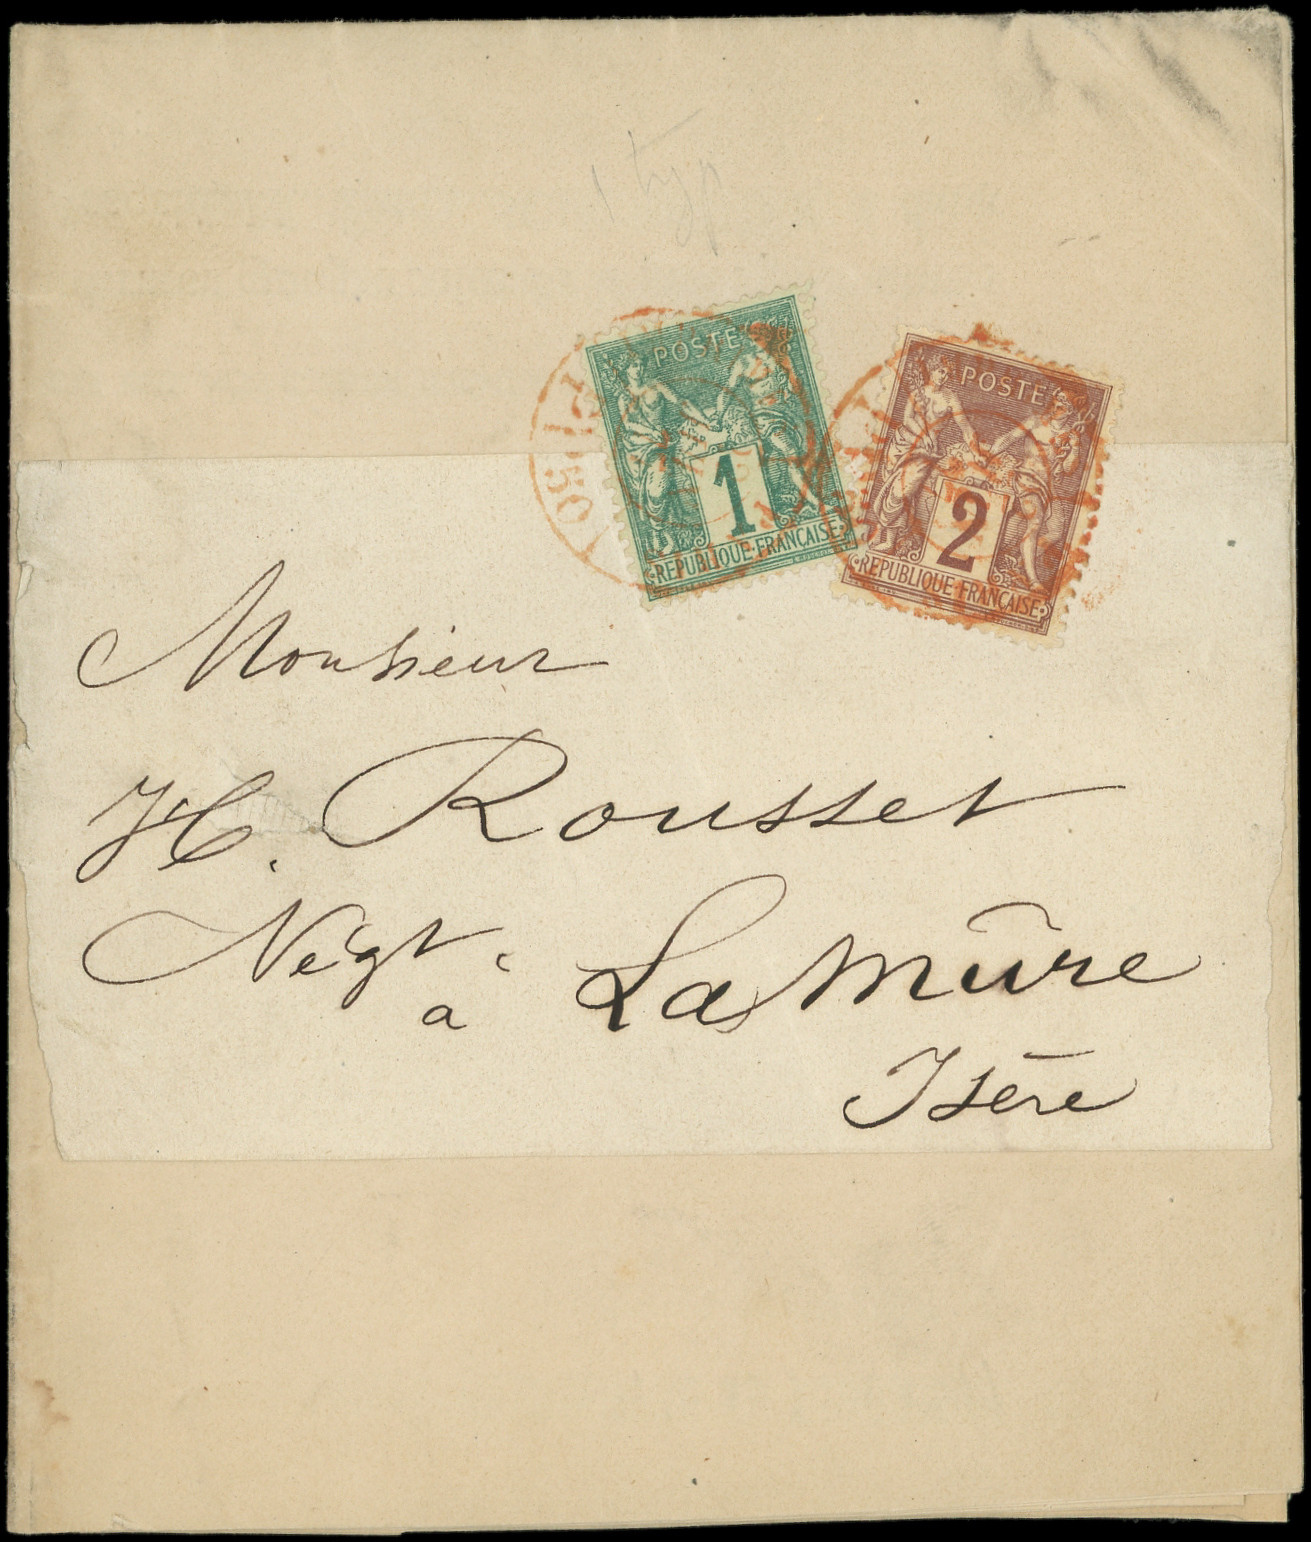 1 typ
POSTE
1
REPUBLIQUE FRANÇAISE
POSTE
2
REPUBLIQUE FRANÇAISE
Monsieur
H. Rousset
Négt.
à La Mûre
Isère